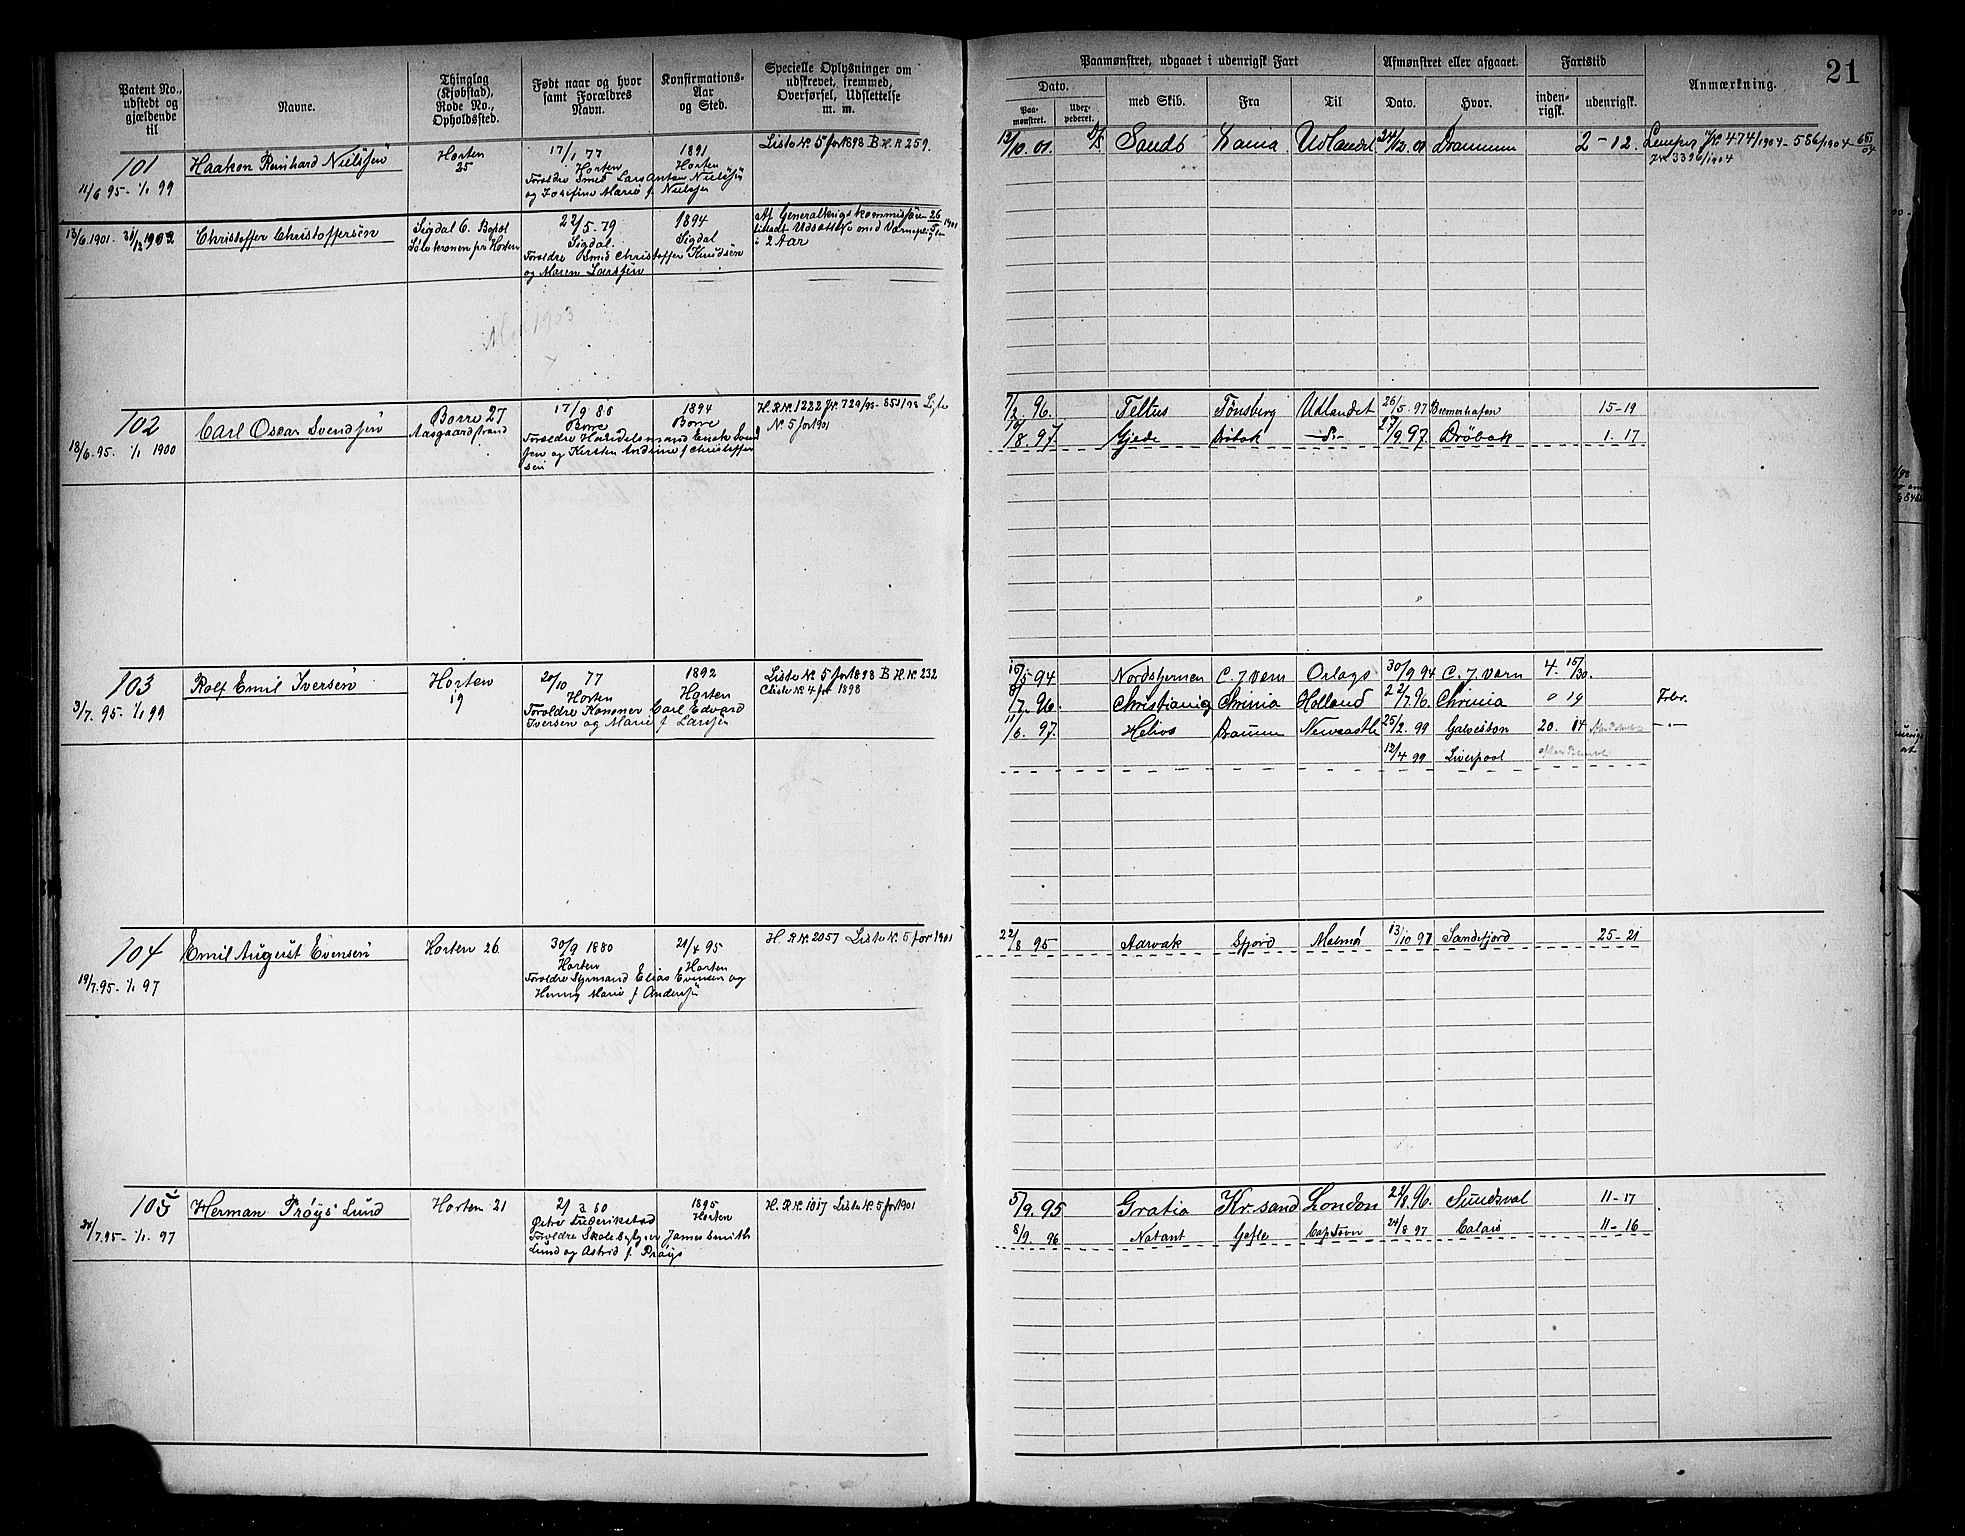 Patent No., udstedt og gjældende til
Navne.
Thinglag (Kjøbstad), Rode No., Opholdssted.
Født naar og hvor samt Forældres Navn.
Konfirmations- Aar og Sted.
Specielle Oplysninger om udskrevet, fremmed, Overførsel, Udslettelse m. m.
Paamønstret, udgaaet i udenrigsk Fart
Afmønstret eller afgaaet.
Fartstid
Anmærkning.
21
Dato.
Paa- mønstret.
Uder- pederet.
med Skib.
Fra
Til
Dato.
Hvor.
inden- rigsk.
udenrigsk.
101
11/6 95 - 1/1 99
Haakon Reinhard Nielsen
Horten
25
17/1 77
Horten
Foreldre Smed Lars Anton Nielsen
og Josefine Marie f. Nielsen
1891
Horten
Liste No. 5 for 1898 B H. R 259.
13/10. 01. D/S Sandö Xania Udlandet 24/12. 01 Drammen 2 - 12.
474/1904 - 586/1904
3396/1904
13/6. 1901. 31/12 1902
Christoffer Christoffersen
Sigdal 6. Bopæl
22/5 - 79
Sigdal.
Foreldre Smed Christoffer Knudsen
og Maren Larssen
1894
Sigdal
Af Generalkrigskommissjonen 26/5 1901
tilstaat Udsættelse med Værnepligten
i 2 Aar
Mai 1903
102
18/6. 95. - 1/1 1900
Carl Oscar Svendsen
Borre 27
Aasgaardstrand
17/9 80
Borre
Foreldre Handelsmand Enok Svend
sen og Kirsten Andrine f Christoffer
sen
1894
Borre
H. R No. 1222 Liste
No. 5 for 1901
7/2. 96. Tellus Tønsberg Udlandet 26/5. 97 Bremerhafen 15-19
10/8. 97. Gjede Drøbak - d - 27/9 97. Drøbak 1. 17
103
3/7. 95. - 1/1 99
Rolf Emil Iversen
Horten
19
20/10 77
Horten
Foreldre Kanoner Carl Edvard
Iversen og Marie f Larssen
1892
Horten
Liste No. 5 for 1898 B H. R 232
Cliste No. 4 for 1898
15/5 94 Nordstjernen C. J. vern Orlogs 30/9 94 C. J. vern 4. 15/30.
8/7. 96. Christianig Chrinia Holland 22/7. 96. Chrinia 0 19 Febr.
11/6. 97. Helios Newcastle 25/2. 99 Galveston 20. 14
12/4 99 Liverpool
104
19/7. 95 - 1/1 97
Emil August Evensen
Horten 26
30/9 1880
Horten
Foreldre Styrmand Elias Evensen og
Henny Marie f Andersen
21/4 95
Horten
H. R No. 2057 Liste No. 5 for 1901
22/8 95 Aarvak Sfjord Malmö 13/10 97 Sandefjord 25-21
105
20/7. 95 - 1/1. 97
Herman Prøys Lund
Horten 21
21/3. 80
Østre Frederikstad
Foreldre Skolebestyrer James Smith
Lund og Astrid f Prøys
1895
Horten
H. R No. 1017 Liste No. 5 for 1901
5/9. 95 Gratia Kr. sand London 22/8. 96. Sundsval 11-17
8/9. 96 Natant Gefle Captown 24/8 97 Calais 11-16